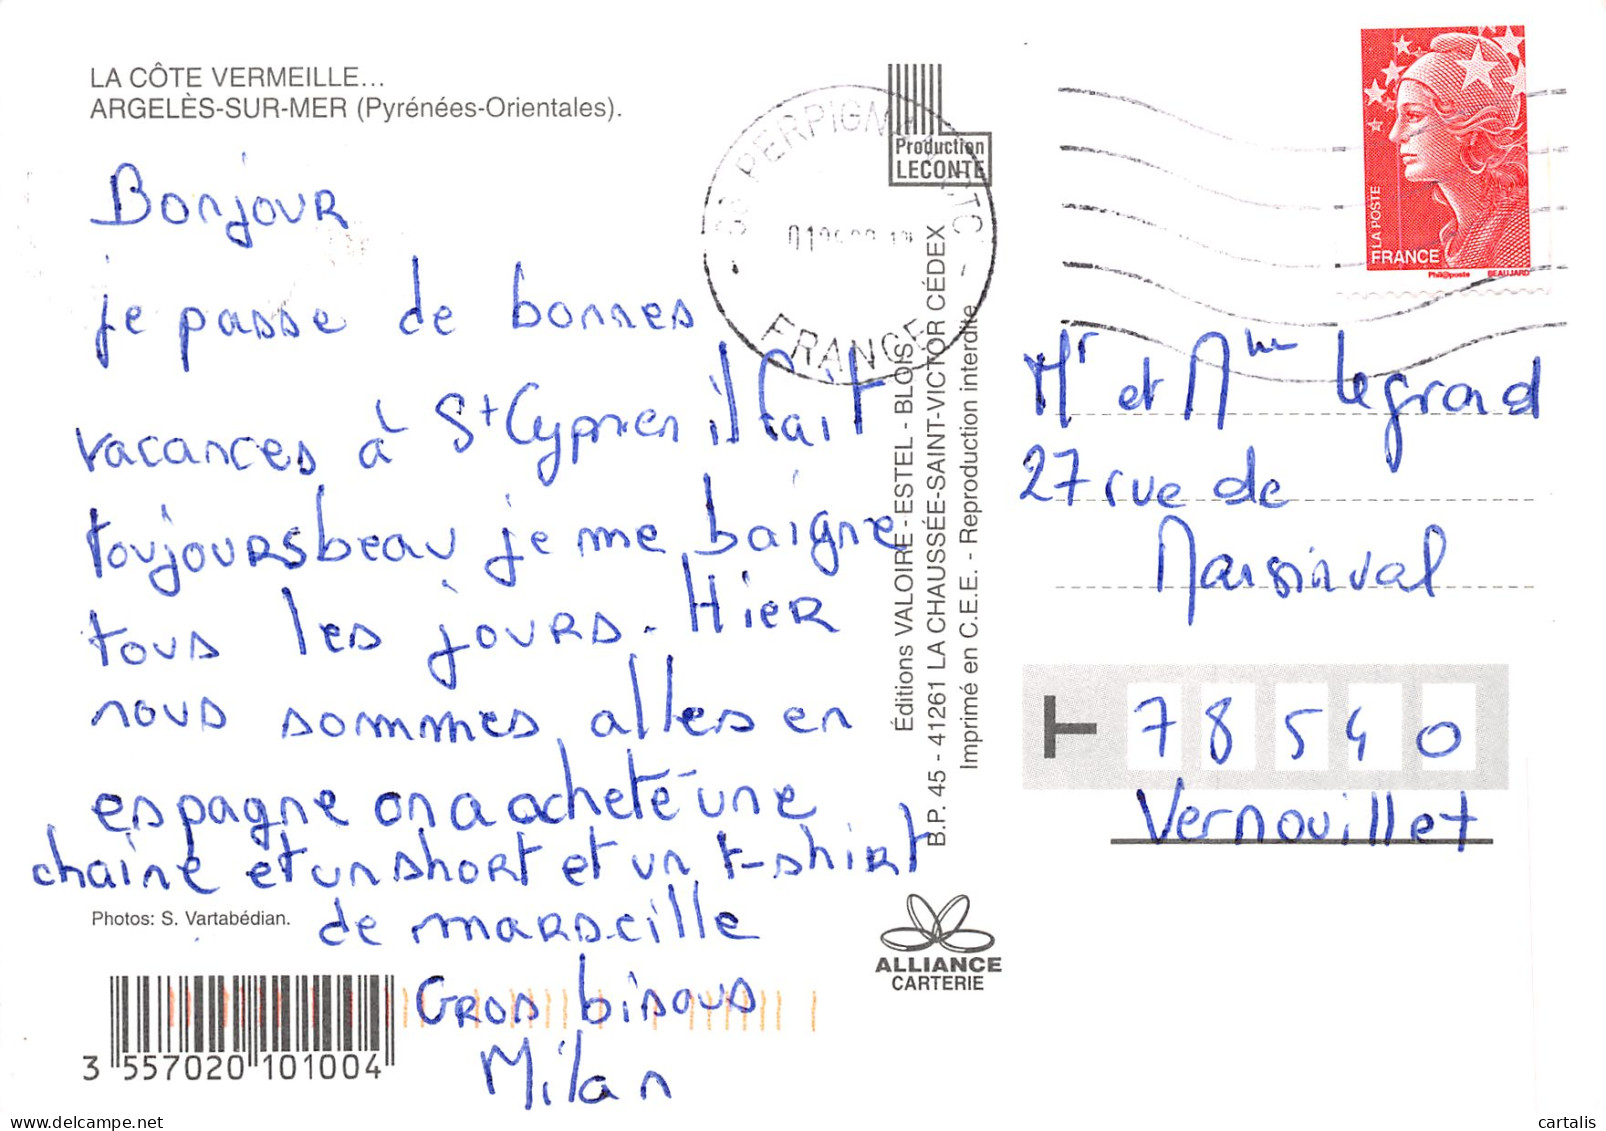 LA CÔTE VERMEILLE...
ARGELÈS-SUR-MER (Pyrénées-Orientales).
Bonjour
je passe de bonnes
vacances à St Cyprien il fait
toujours beau je me baigne
tous les jours. Hier
nous sommes alles en
espagne on a acheté une
chaine et un short et un t-shirt
de marseille
Gros bisous
Milan
Photos: S. Vartabédian.
3 557020 101004
Production
LECONTE
PERPIGN
FRANCE
Éditions VALOIRE-ESTEL - BLOIS
B.P. 45 - 41261 LA CHAUSSÉE-SAINT-VICTOR CÉDEX
Imprimé en C.E.E. - Reproduction interdite
ALLIANCE
CARTERIE
LA POSTE
FRANCE
Phil@poste BEAUJARD
Mr et Mme Legrand
27 rue de
Marsinval
T 78540
Vernouillet
cartalis